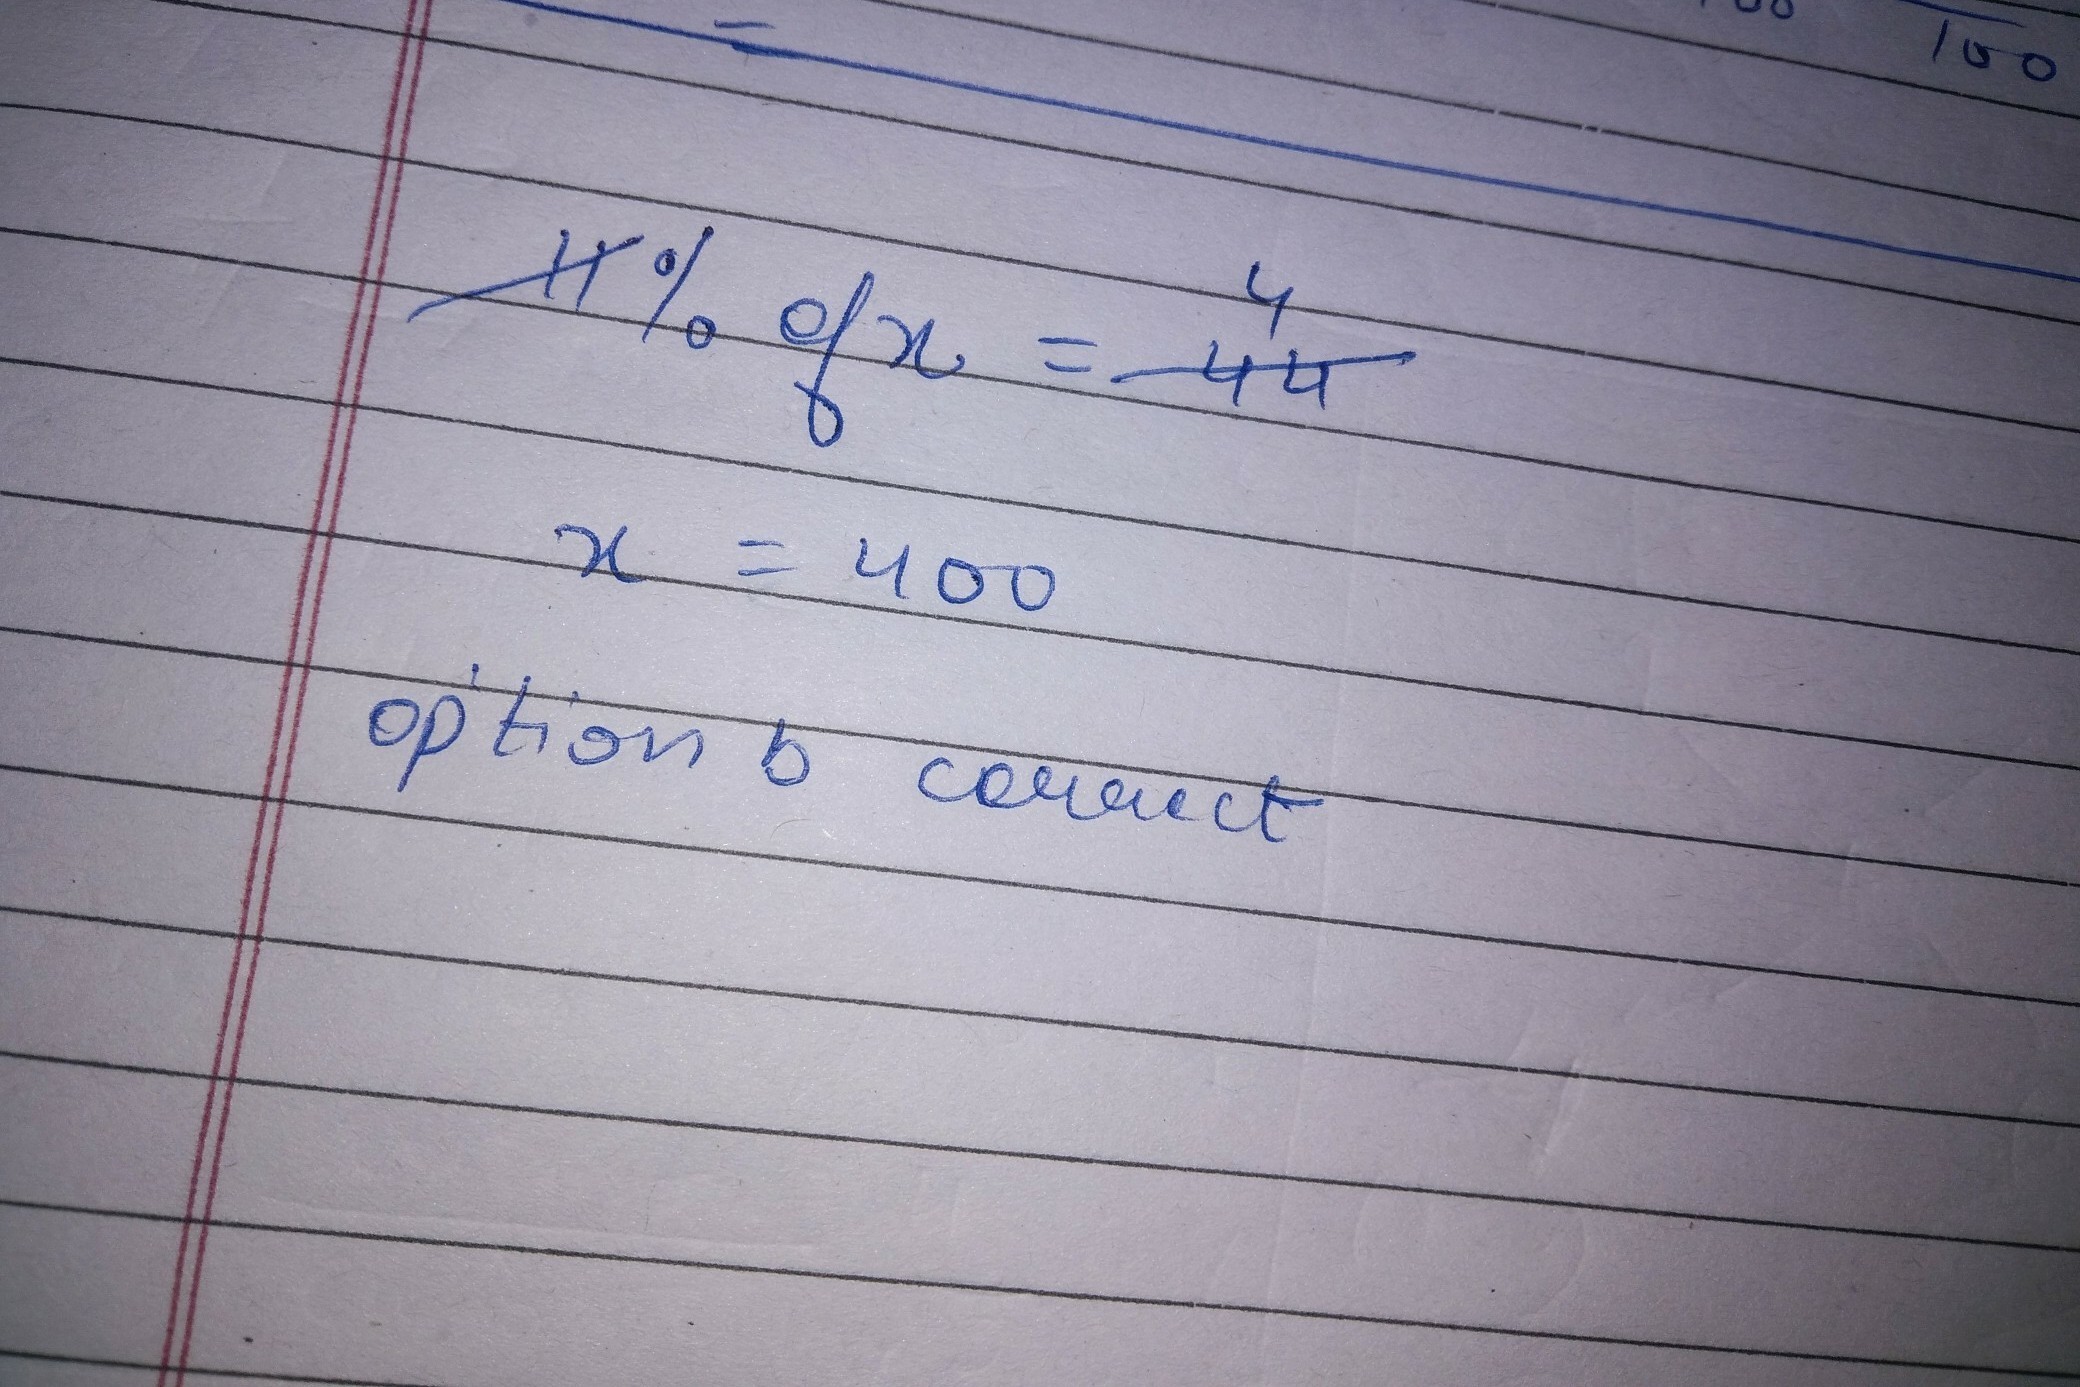 =
100
100
11% of x = 44
4
x = 400
option b correct